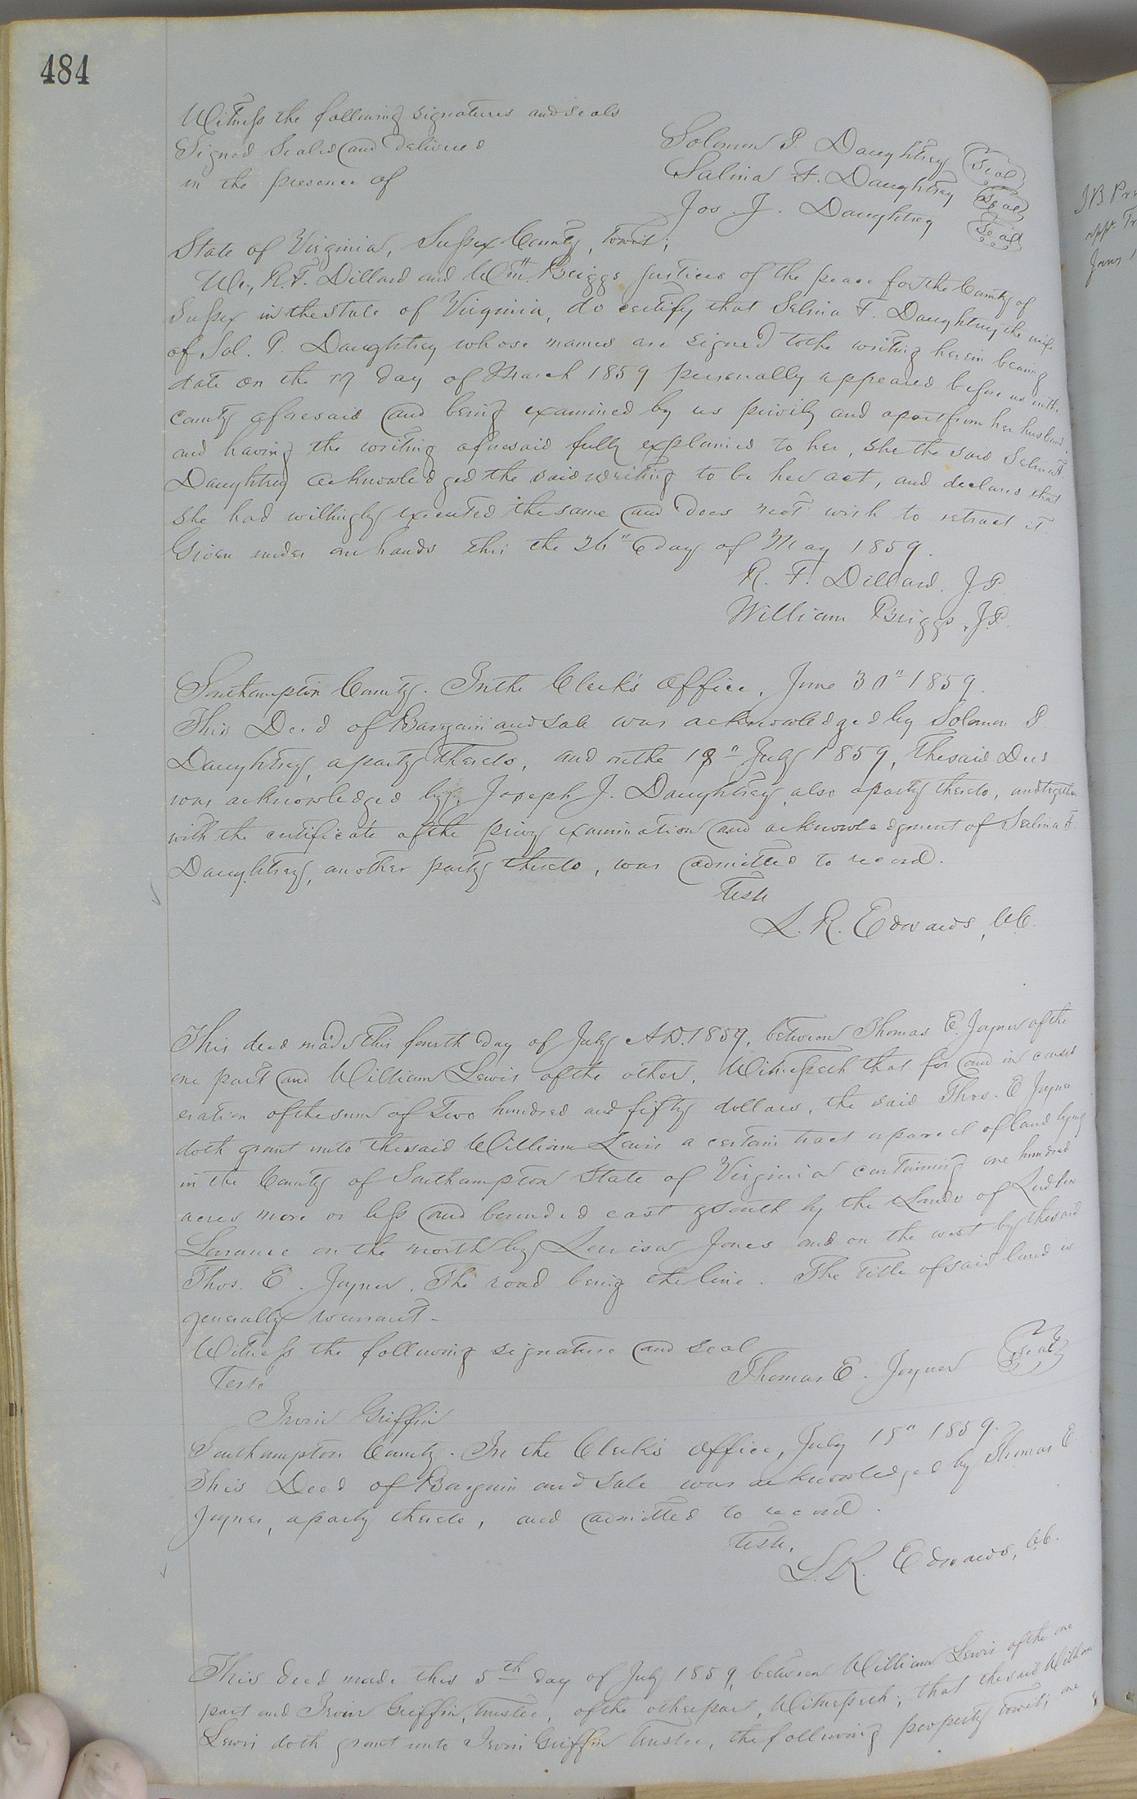 484
Witness the following signatures and seals
Signed Sealed and delivered
in the presence of
Solomon P Daughtrey Seal
Salina F. Daughtrey Seal
Jos J. Daughtrey Seal
State of Virginia, Sussex County, towit;
We, R. F. Dillard and Wm. Briggs justices of the peace for the County of
Sussex in the State of Virginia, do certify that Selina F. Daughtrey the wife
of Sol. P. Daughtrey whose names are signed to the writing herein bearing
date on the 17 day of March 1859 personally appeared before us in the
County aforesaid and being examined by us privily and apart from her husband
and having the writing aforesaid fully explained to her, She the said Selina F
Daughtrey acknowledged the said writing to be her act, and declares that
She had willingly executed the same and does not wish to retract it
Given under our hands this the 26th day of May 1859.
R. F. Dillard. J.P.
William Briggs, J.P.
Southampton County. In the Clerk's Office, June 30" 1859.
This Deed of Bargain and Sale was acknowledged by Solomon P
Daughtrey, a party thereto, and on the July 1859, the said Deed
was acknowledged by Joseph J. Daughtrey, also a party thereto, and together
with the certificate of the privy examination and acknowledgment of Selina F
Daughtrey, another party thereto, was admitted to record.
Teste
L. R. Edwards, C.C.
This deed made this fourth day of July A.D. 1859, between Thomas E. Joyner of the
one part and William Lewis of the other, Witnesseth that for and in consid
eration of the sum of Two hundred and fifty dollars, the said Thos. E Joyner
doth grant unto the said William Lewis a certain tract or parcel of land lying
in the County of Southampton State of Virginia containing one hundred
acres more or less and bounded east & South by the Lands of
on the north by Louisa Jones and on the west by the said
Thos. E. Joyner, The road being the line. The title of said land is
generally warrant.
Witness the following signature and seal
Teste
Thomas E. Joyner Seal
Irvin Griffin
Southampton County. In the Clerk's Office, July 1859.
This Deed of Bargain and Sale was acknowledged by Thomas E
Joyner, a party thereto, and admitted to record.
Teste,
L. R. Edwards, C.C.
This deed made this 5th day of July 1859, between William Lewis of the one
part and Irvin Griffin, Trustee, of the other part, Witnesseth; that the said William
Lewis doth grant unto Irvin Griffin Trustee, the following property towit; one